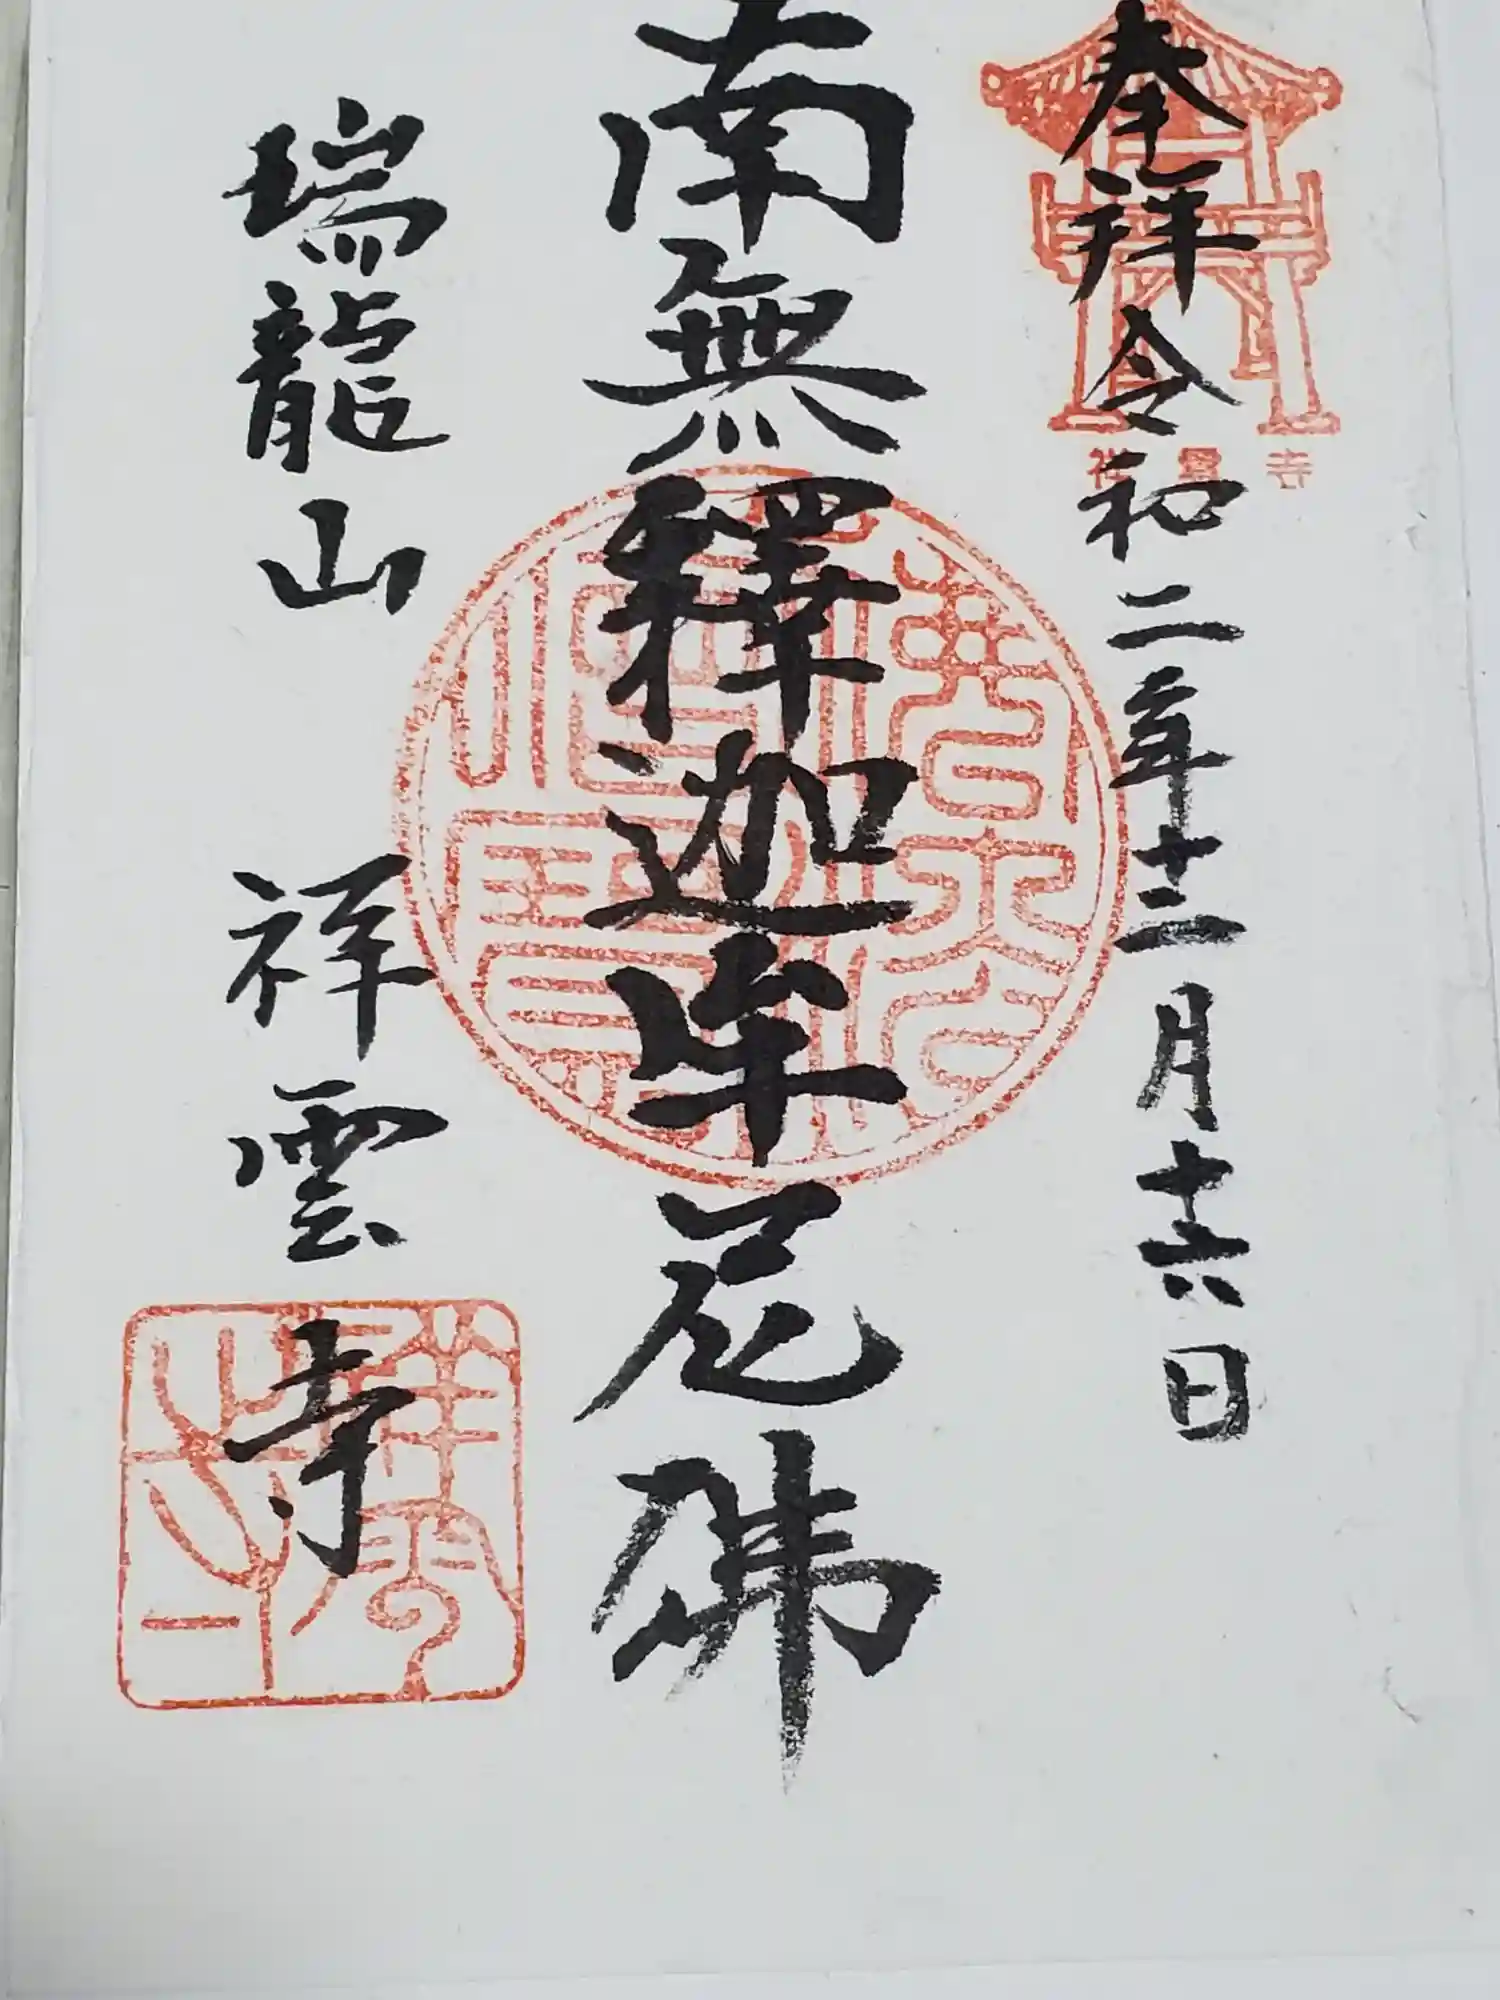 奉拝 令和二年十二月十六日
南無釋迦牟尼佛
瑞龍山 祥雲寺
祥雲寺